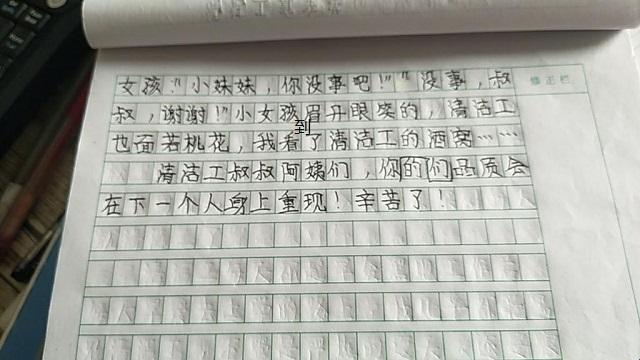 女孩:“小妹妹，你没事吧！”“没事，叔
叔，谢谢！”小女孩眉开眼笑的，清洁工
到
也面若桃花，我看了清洁工的酒窝……
清洁工叔叔阿姨们，你的们品质会
在下一个人身上重现！辛苦了！
修正栏